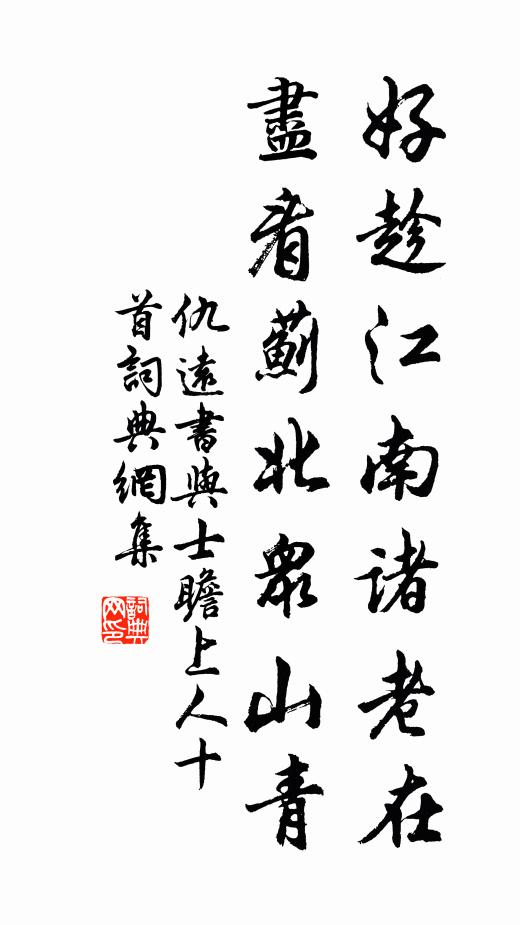 好趁江南諸老在
盡看薊北眾山青
仇遠書與士瞻上人十
首詞典網集
詞典
网印